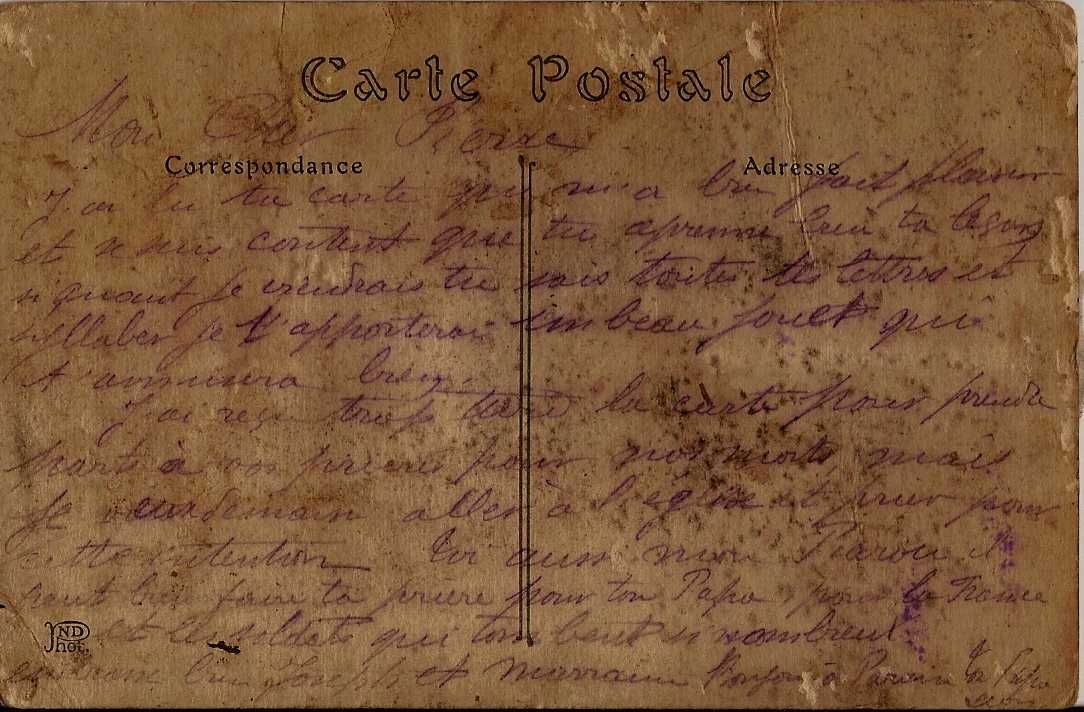 Carte Postale
Mon Cher Pierre
Correspondance
Adresse
J'ai lu ta carte qui m'a bien fait plaisir
et suis content que tu aprenne bien ta leçons
si quant je viendrais tu sais toutes tes lettres et
sillabes je t'apporterai un beau jouet qui
t'amusera bien.
J'ai reçu trop tard la carte pour prendre
parts à vos prières pour nos morts, mais
Je demain aller à l'église et prier pour
cette intention Toi aussi mon Pierrou il
faut bien faire ta prière pour ton Papa pour la France
et les soldats qui tombent si nombreux.
ND
Phot.
embrasse bien Joseph et marraine Bonjour à Parrain Ton Papa